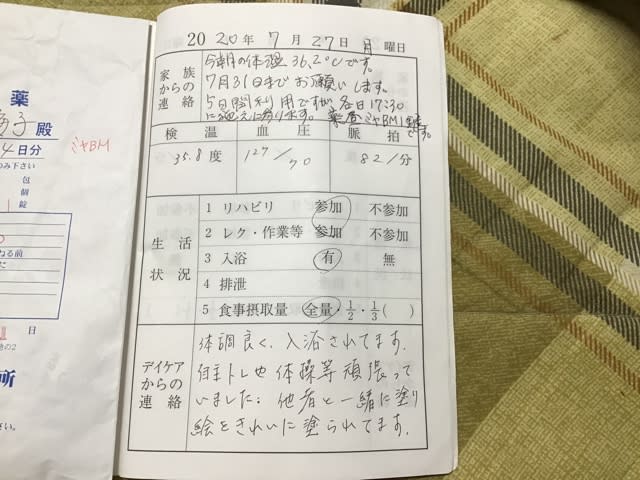 薬
子殿
4日分
ミヤBM
のみ下さい
包
個
錠
ねる前
に
日
他の2
所
さい。
20 20年 7月 27日 月曜日
家族からの連絡
今朝の体温 36.2℃です。
7月31日までお願いします。
5日間利用ですが、各日17:30
に迎えに参ります。薬 ミヤBM
です。
検温 血圧 脈拍
35.8度 127/70 82/分
生活状況
1 リハビリ 参加 不参加
2 レク・作業等 参加 不参加
3 入浴 有 無
4 排泄
5 食事摂取量 全量・1/2・1/3( )
デイケアからの連絡
体調良く、入浴されてます。
自主トレや体操等頑張って
いました。他者と一緒に塗り
絵をきれいに塗られてます。